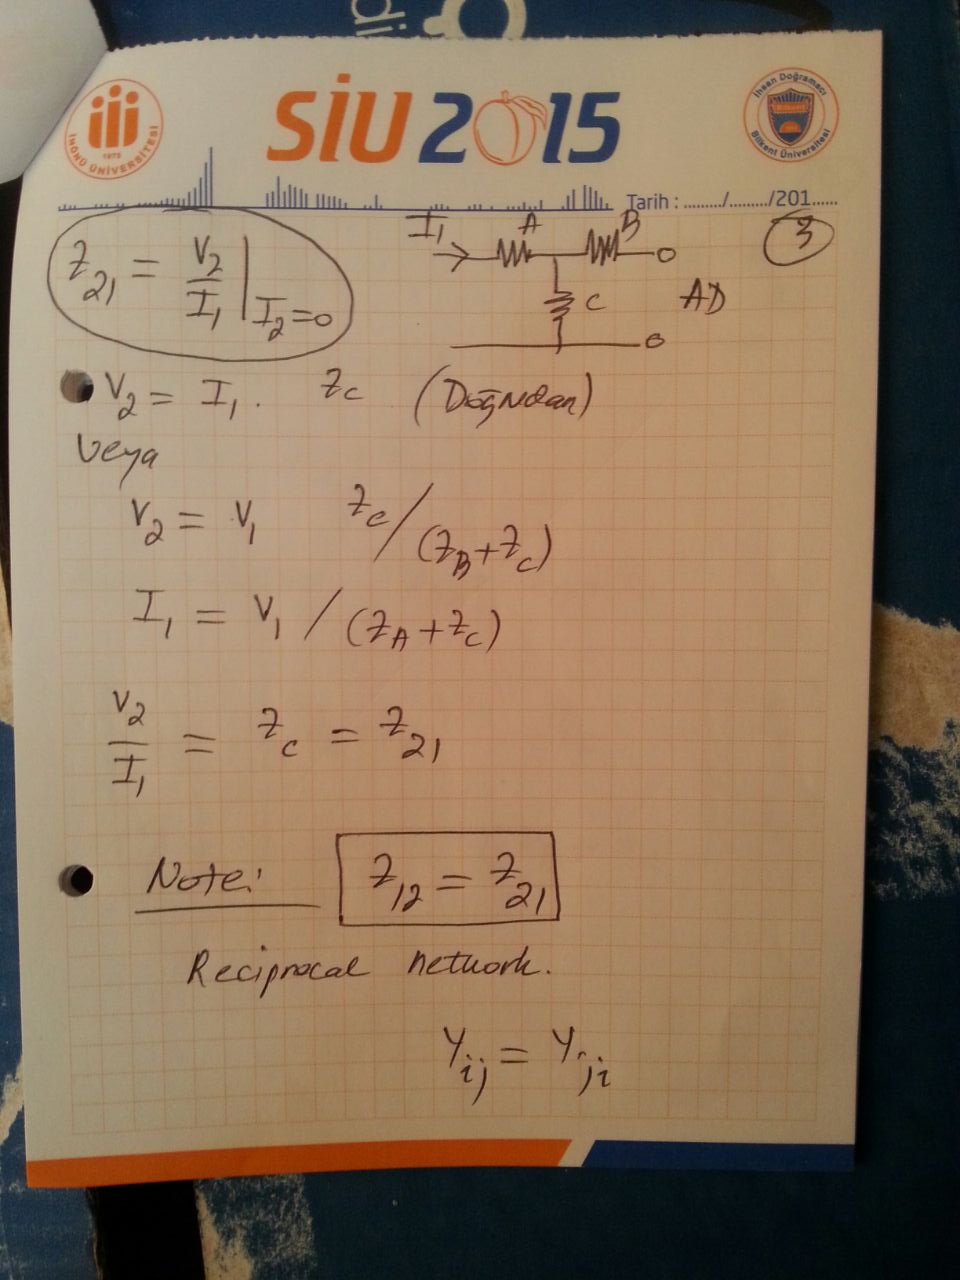 İNÖNÜ ÜNİVERSİTESİ
1975
SİU 2015
İhsan Doğramacı
Bilkent Üniversitesi
Tarih : ......../......../201......
3
Z21 = V2/I1 | I2=0
I1 A B
C AD
V2 = I1 . Zc (Doğrudan)
veya
V2 = V1 Zc/(ZB+Zc)
I1 = V1 / (ZA+Zc)
V2/I1 = Zc = Z21
Note: Z12 = Z21
Reciprocal network.
Yij = Yji